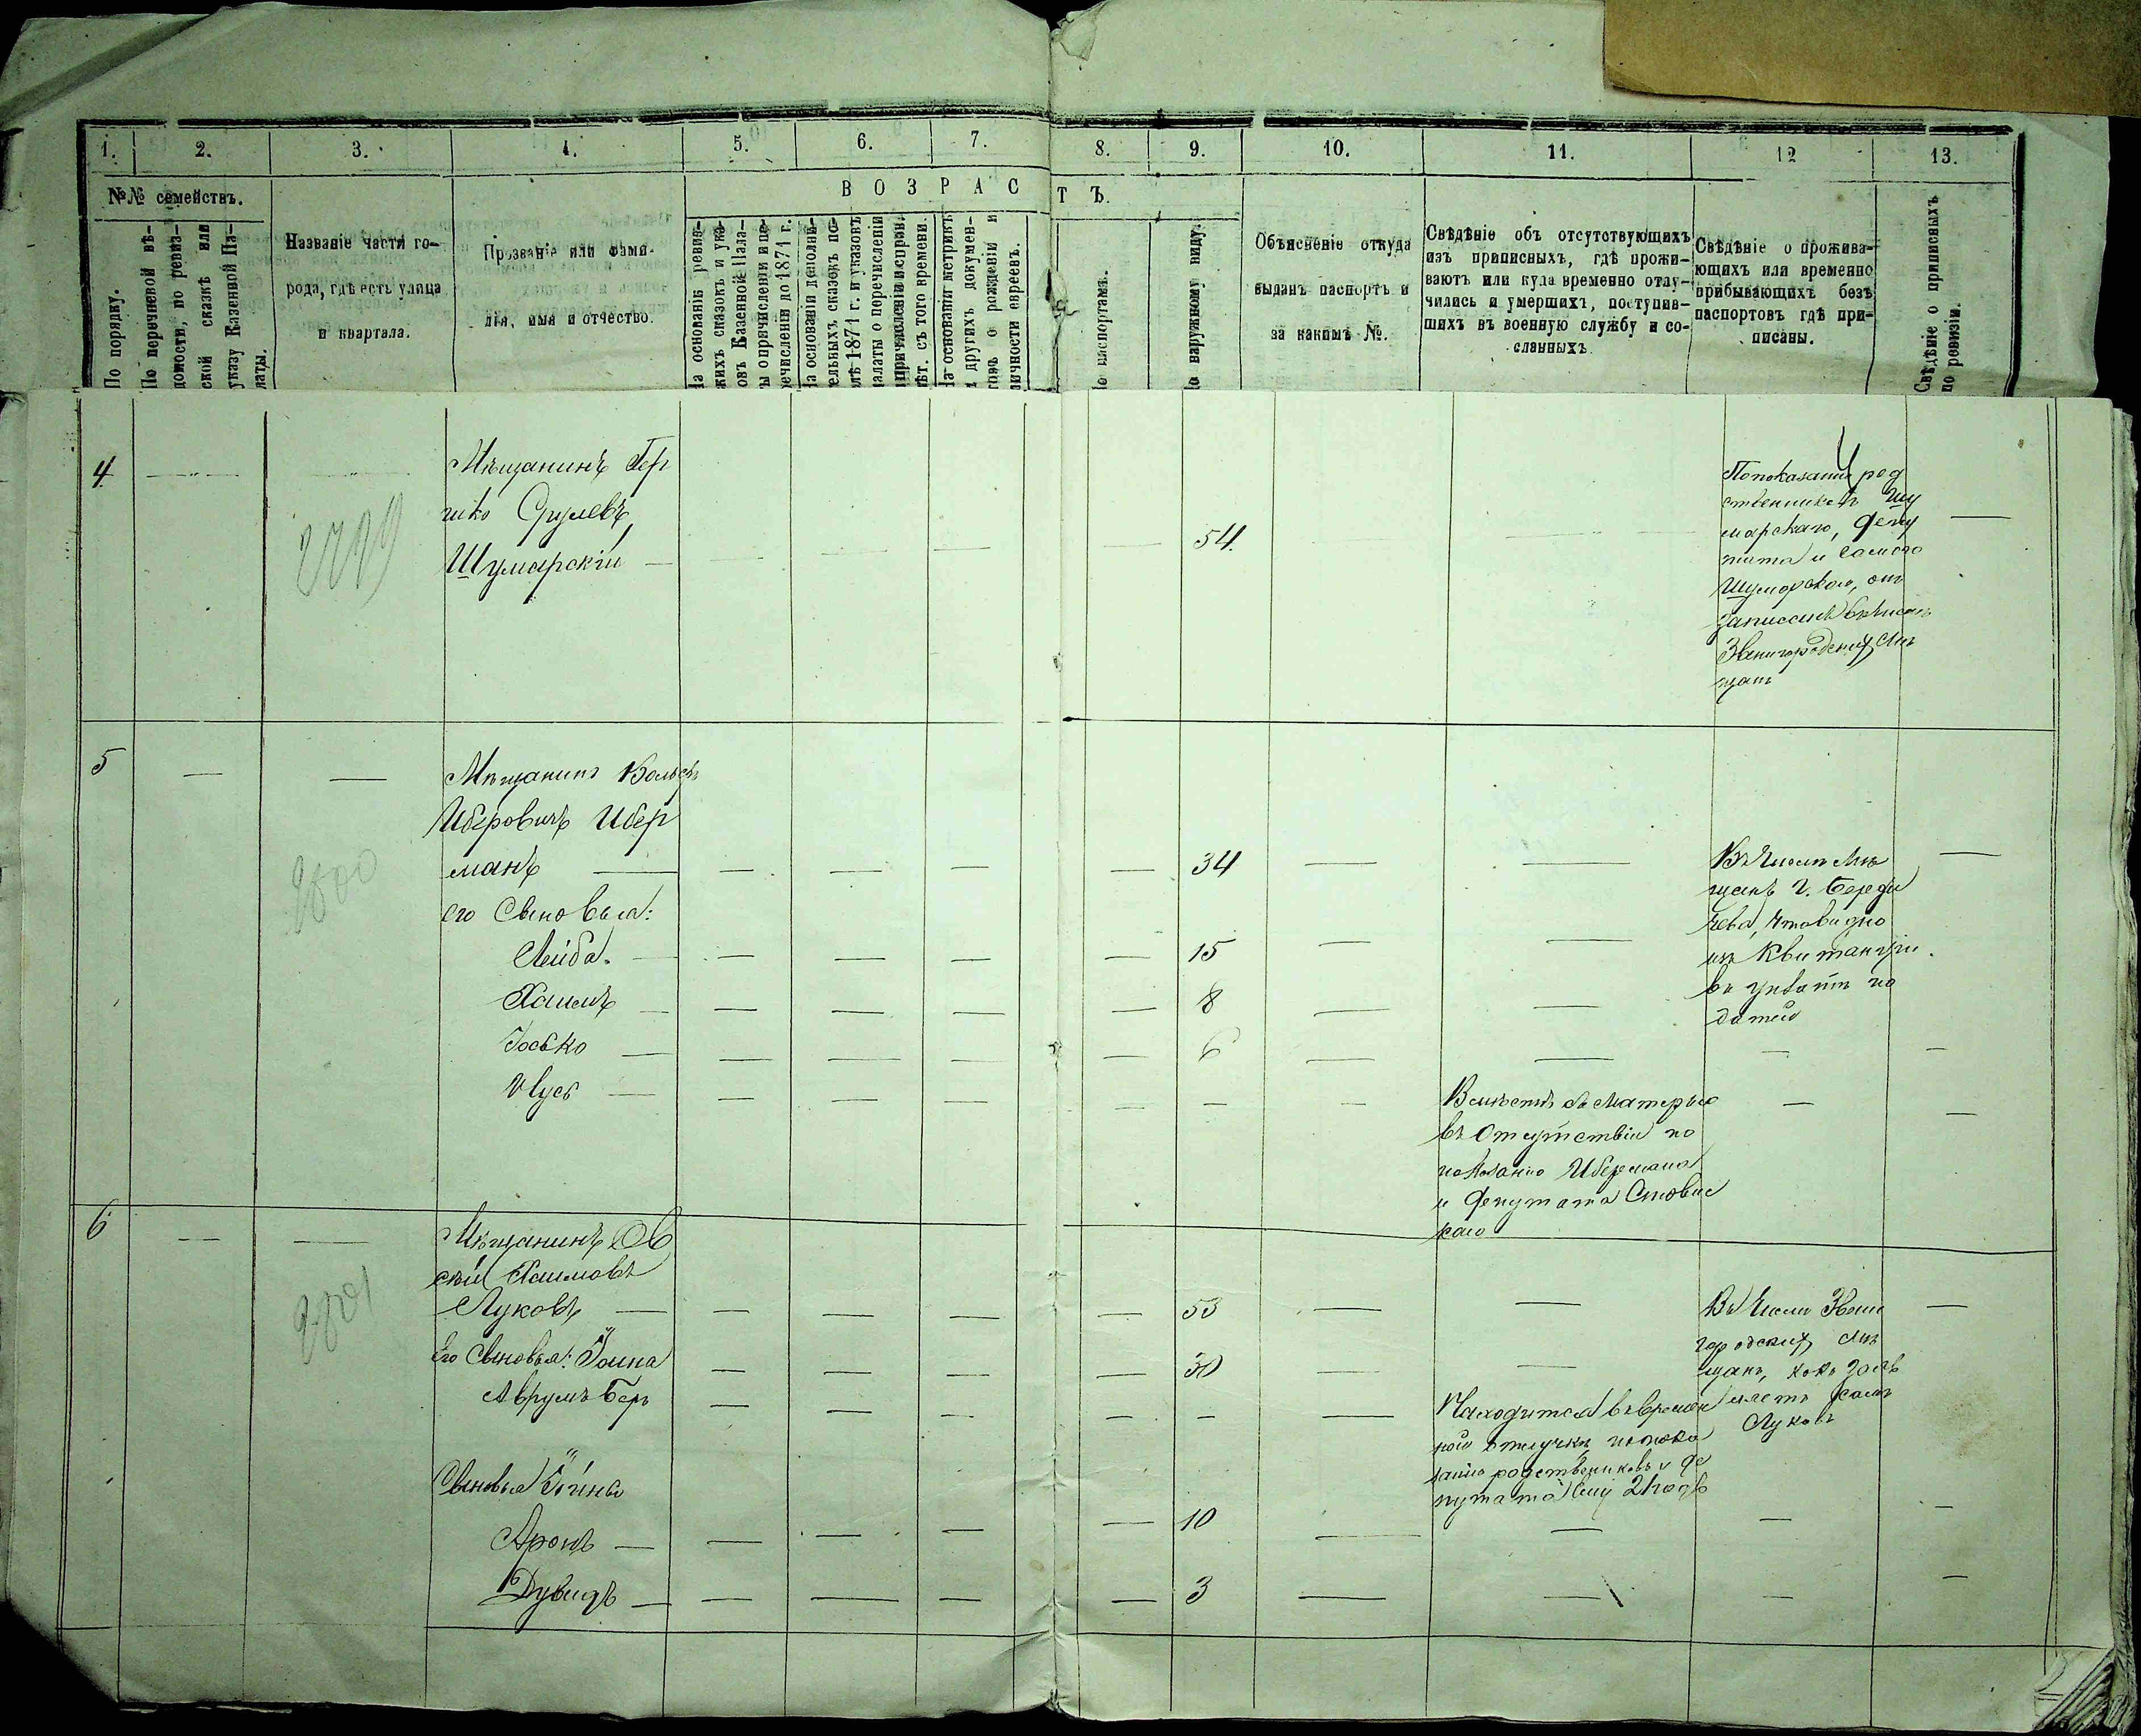 1. 2. 3. 4. 5. 6. 7. 8. 9. 10. 11. 12 13.
№№ семействъ.
По порядку.
По перечневой вѣ-
домости, по ревиз-
ской сказкѣ или
указу Казенной Па-
латы.
Названіе части го-
рода, гдѣ есть улица
и квартала.
Прозваніе или фами-
лія, имя и отчество.
ВОЗРАСТЪ.
На основаніи ревиз-
скихъ сказокъ и ука-
зовъ Казенной Пала-
ты о причисленіи и пе-
речисленіи до 1871 г.
На основаніи дополни-
тельныхъ сказокъ по-
слѣ 1871 г. и указовъ
палаты о перечисленіи
и причисленіи и справ.
лѣт. съ того времени.
На основаніи метрикъ
и другихъ докумен-
товъ о рожденіи и
личности евреевъ.
По паспортамъ.
По наружному виду.
Объясненіе откуда
выданъ паспортъ и
за какимъ №.
Свѣдѣніе объ отсутствующихъ
изъ приписныхъ, гдѣ прожи-
ваютъ или куда временно отлу-
чились и умершихъ, поступив-
шихъ въ военную службу и со-
сланныхъ
Свѣдѣніе о прожива-
ющихъ или временно
прибывающихъ безъ
паспортовъ гдѣ при-
писаны.
Свѣдѣніе о приписныхъ
по ревизіи.
4
2799
Мѣщанинъ Гер
шко Срулевъ
Шумарскій
54.
По показанію род
ственниковъ Шу
марскаго, депу
тата и самаго
Шумарскаго, онъ
записанъ въ числѣ
Звенигородскихъ мѣ
щанъ
5
2800
Мѣщанинъ Вольфъ
Иберовичъ Ибер
манъ
34
Въ числѣ мѣ
щанъ г. Берди
чева, что видно
изъ квитанціи
въ уплатѣ по
датей
его сыновья:
Лейба. 15
Хаимъ 8
Іосько 6
Мусь
Вмѣстѣ съ матерью
въ отсутствіи по
показанію Ибермана
и депутата
6
2801
Мѣщанинъ Ов
сѣй Хаимовъ
Луковъ
53
Въ числѣ Звени
городскихъ мѣ
щанъ, какъ заяв
ляетъ самъ
Луковъ
Его сыновья: Іоина 30
Аврумъ Беръ
Находится въ времен
ной отлучкѣ по пока
занію родственниковъ и де
путата ему 21 годъ
Сыновья Іоины
Аронъ 10
Дувидъ 3